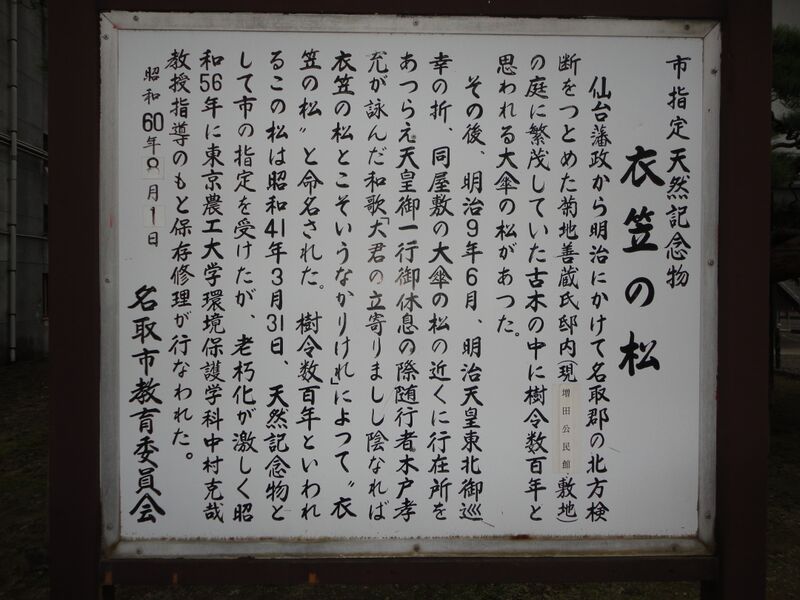 市指定天然記念物
衣笠の松
仙台藩政から明治にかけて名取郡の北方検
断をつとめた菊地善蔵氏邸内(現増田公民館敷地)
の庭に繁茂していた古木の中に樹令数百年と
思われる大傘の松があつた。
その後、明治9年6月、明治天皇東北御巡
幸の折、同屋敷の大傘の松の近くに行在所を
あつらえ天皇御一行御休息の際随行者木戸孝
允が詠んだ和歌「大君の立寄りましし陰なれば
衣笠の松とこそいうなかりけれ」によつて〝衣
笠の松〟と命名された。樹令数百年といわれ
るこの松は昭和41年3月31日、天然記念物と
して市の指定を受けたが、老朽化が激しく昭
和56年に東京農工大学環境保護学科中村克哉
教授指導のもと保存修理が行なわれた。
昭和60年8月1日
名取市教育委員会